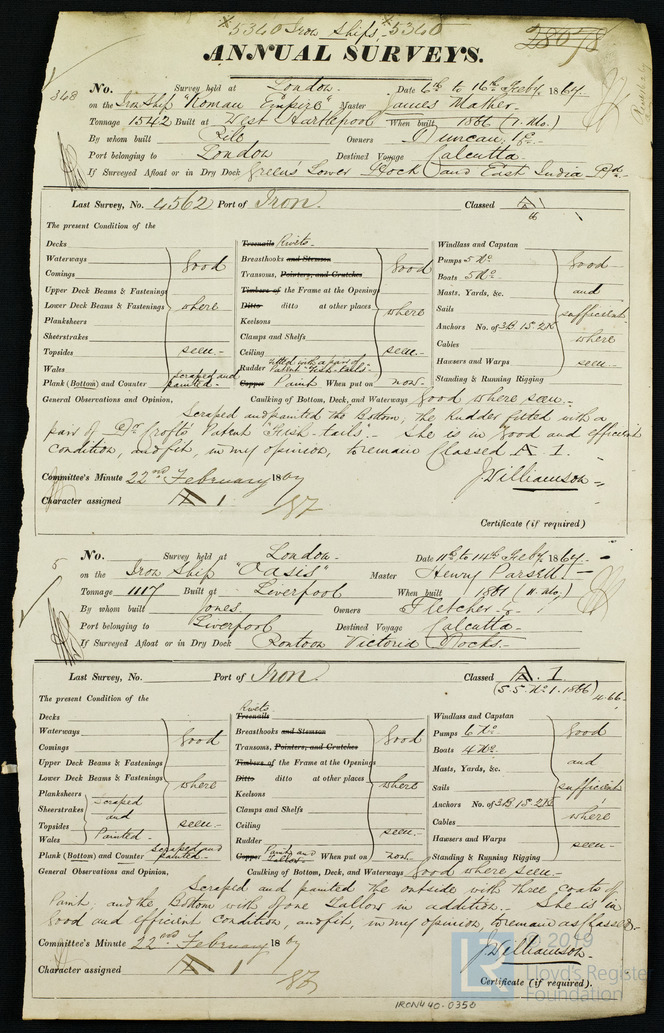 5340 Iron Ships. 5340
28078
ANNUAL SURVEYS.
348 No. Survey held at London. Date 6th to 16th Feby. 1867
on the Iron Ship "Roman Empire" Master James Mather.
Tonnage 1542 Built at West Hartlepool When built 1866 (7. Mo.)
By whom built Pile Owners Duncan, &c.
Port belonging to London Destined Voyage Calcutta.
If Surveyed Afloat or in Dry Dock Green's Lower Dock and East India
Last Survey, No. 4562 Port of Iron. Classed A 1
The present Condition of the
Decks Treenails Rivets Windlass and Capstan
Waterways Good Breasthooks and Stemson Good Pumps 5 No. Good
Comings Transoms, Pointers, and Crutches Boats 5 No.
Upper Deck Beams & Fastenings Timbers of the Frame at the Openings Masts, Yards, &c. and
Lower Deck Beams & Fastenings where Ditto ditto at other places where Sails sufficient
Planksheers Keelsons Anchors No. of 3B 1S 2K
Sheerstrakes Clamps and Shelfs Cables where
Topsides seen Ceiling seen Hawsers and Warps seen
Wales Rudder fitted with a pair of Patent "Fish-tails"
Plank (Bottom) and Counter scraped and painted. Copper Paint When put on now. Standing & Running Rigging
General Observations and Opinion, Caulking of Bottom, Deck, and Waterways Good where seen.
Scraped and painted the Bottom, the Rudder fitted with a
pair of Croft's Patent "Fish-tails". She is in Good and efficient
condition, and fit, in my opinion, to remain Classed A. 1.
Committee's Minute 22nd February 1867 J Williamson
Character assigned A 1
Certificate (if required)
5 No. Survey held at London. Date 11th to 14th Feby. 1867.
on the Iron Ship "Oasis" Master Henry Parsell
Tonnage 1117 Built at Liverpool When built 1861 (11. Mo.)
By whom built Jones. Owners Fletcher
Port belonging to Liverpool Destined Voyage Calcutta.
If Surveyed Afloat or in Dry Dock Pontoon Victoria Docks.
Last Survey, No. Port of Iron. Classed A. 1
(S S No 1. 1866) 4.66
The present Condition of the
Decks Rivets Treenails Windlass and Capstan
Waterways Good Breasthooks and Stemson Good Pumps 6 No. Good
Comings Transoms, Pointers, and Crutches Boats 4 No.
Upper Deck Beams & Fastenings Timbers of the Frame at the Openings Masts, Yards, &c. and
Lower Deck Beams & Fastenings where Ditto ditto at other places where Sails sufficient
Planksheers scraped Keelsons Anchors No. of 3B 1S 2K
Sheerstrakes and Clamps and Shelfs Cables where
Topsides Painted seen Ceiling seen Hawsers and Warps seen
Wales Rudder
Plank (Bottom) and Counter scraped and painted. Copper Paint and Tallow When put on now. Standing & Running Rigging
General Observations and Opinion, Caulking of Bottom, Deck, and Waterways Good where seen
Scraped and painted the outside with three coats of
Paint, and the Bottom with one Tallow in addition. She is in
Good and efficient condition, and fit, in my opinion, to remain as Classed.
Committee's Minute 22nd February 1867 J Williamson.
Character assigned A 1
Certificate (if required).
© 2019
LR Lloyd's Register
Foundation
IRON440-0350